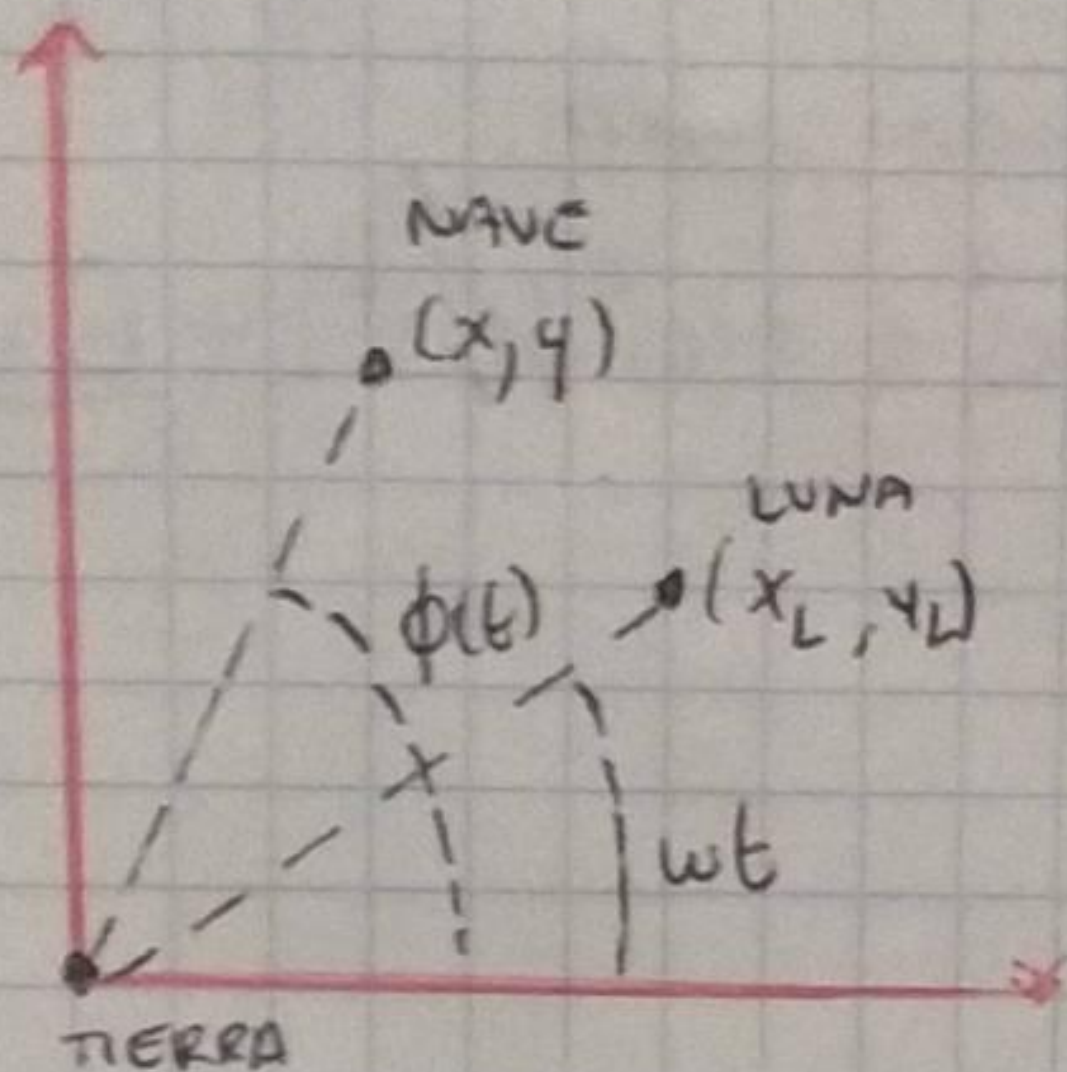 NAVE
(x, y)
LUNA
ϕ(t)
(x_L, y_L)
ωt
TIERRA